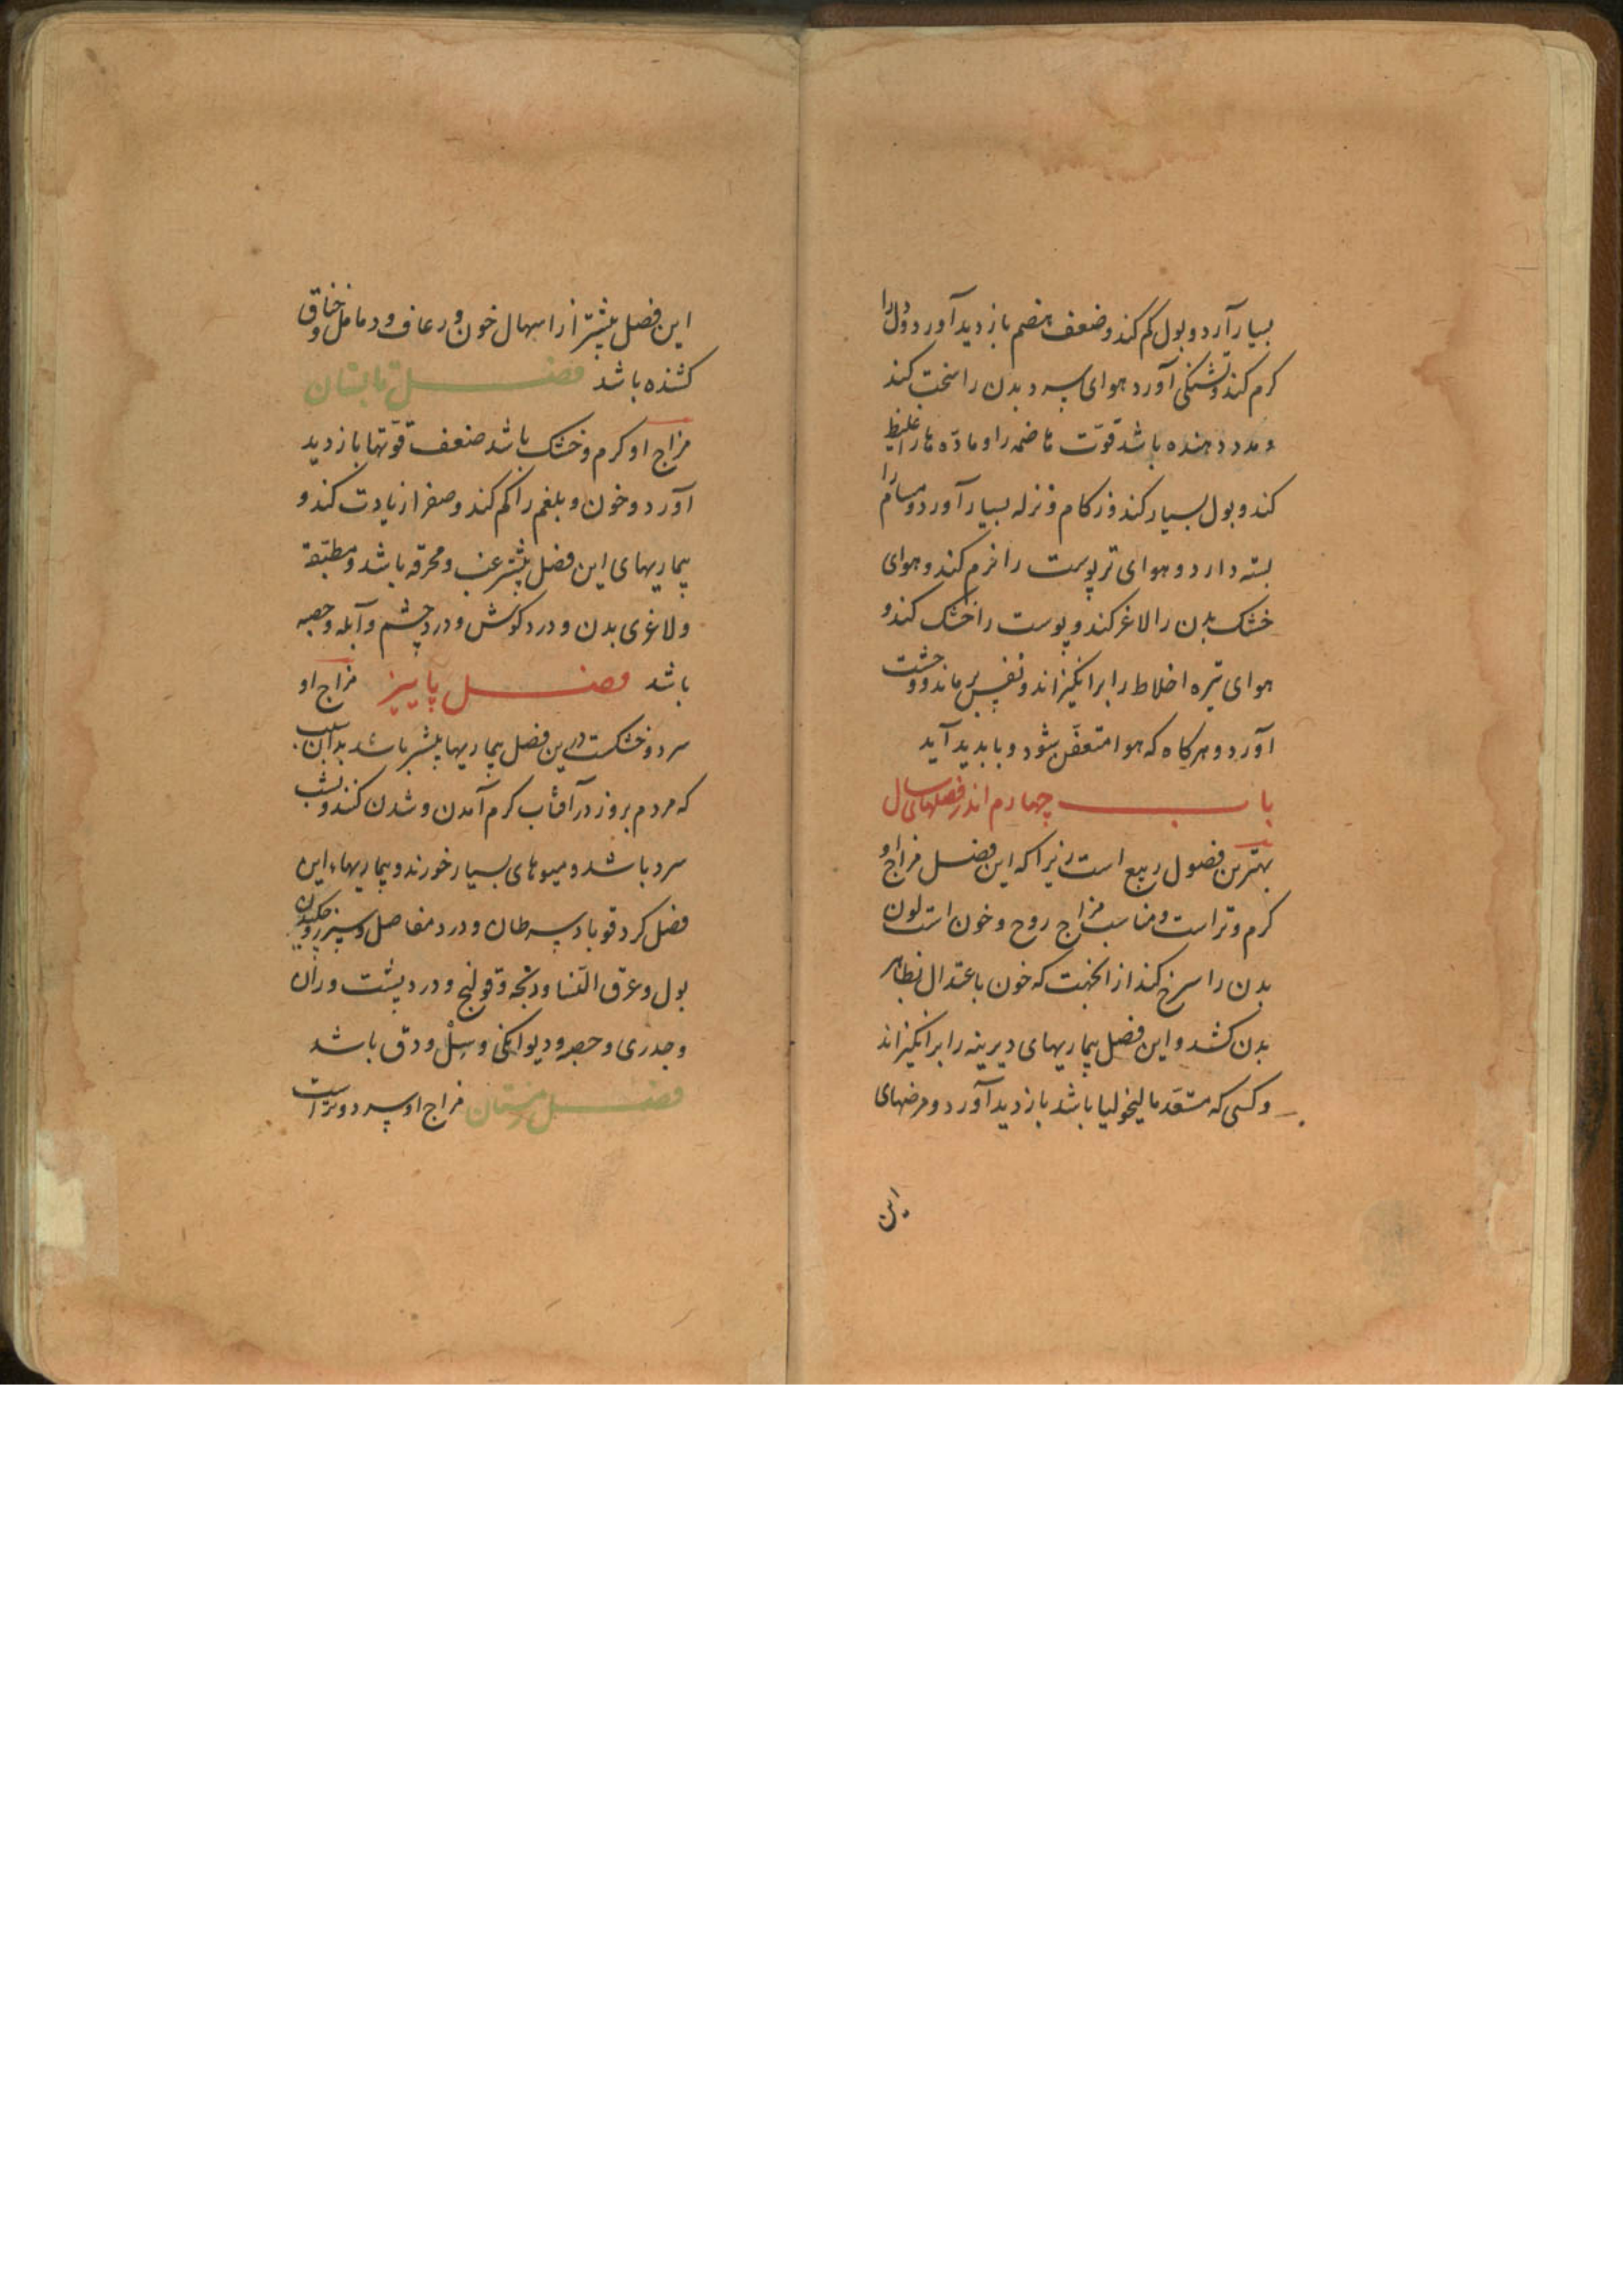 بسیار آرد و بول کم کند و ضعف هضم بازدید آورد و دل را
کرم کند و تشنکی آورد هوای سرد بدن را سخت کند
و مدد دهنده باشد قوّت هاضمه را و مادّه ها را غلیظ
کند و بول بسیار کند و زکام و نزله بسیار آورد و مسام را
بسته دارد و هوای تر پوست را نرم کند و هوای
خشک بدن را لاغر کند و پوست را خشک کند و
هوای تیره اخلاط را برانکیزاند و نفس بر ماند و وحشت
آورد و هرکاه که هوا متعفّن شود و با بدید آید
باب چهارم اندر فصلهای سال
بهترین فصول ربیع است زیرا که این فصل مزاج او
کرم و تر است و مناسب مزاج روح و خون است لون
بدن را سرخ کند از آنجهت که خون باعتدال بظاهر
بدن کشد و این فصل بیماریهای دیرینه را برانکیزاند
و کسی که مستعد مالیخولیا باشد بازدید آورد و مرضهای
این
این فصل بیشتر از اسهال خون و رعاف و دمامل و خناق
کشنده باشد فصل تابستان
مزاج او کرم و خشک باشد ضعف قوّتها بازدید
آورد و خون و بلغم را کم کند و صفرا زیادت کند و
بیماریهای این فصل بیشتر غب و محرقه باشد و مطبّقة
و لاغری بدن و درد کوش و درد چشم و آبله و حصبه
باشد فصل پاییز مزاج او
سرد و خشکست درین فصل بیماریها بیشتر باشد بدان سبب
که مردم بروز در آفتاب کرم آمدن و شدن کنند و شب
سرد باشد و میوهای بسیار خورند و بیماریهاء این
فصل کر و قوبا و سرطان و درد مفاصل و سپرز و چکیدن
بول و عرق النسا و ذبحه و قولنج و درد پشت و ران
و جدری و حصبه و دیوانکی و سلّ و دق باشد
فصل زمستان مزاج او سرد و تر است